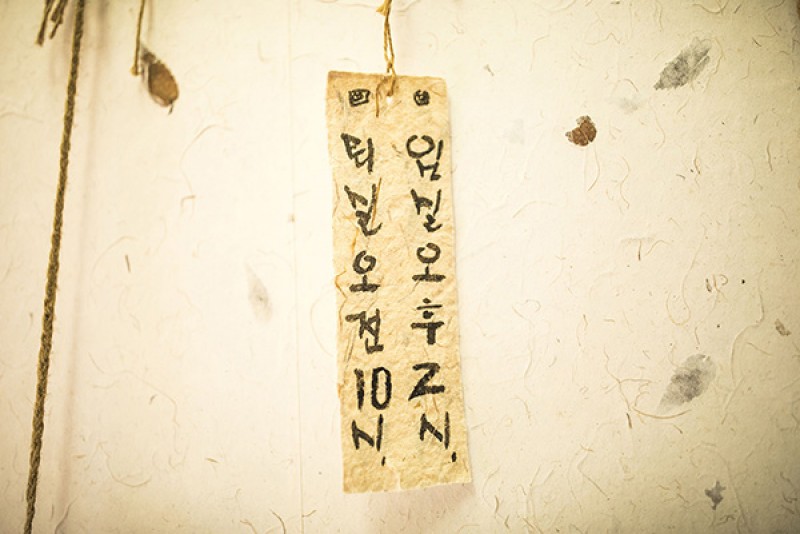 입실오후2시.
퇴실오전10시.